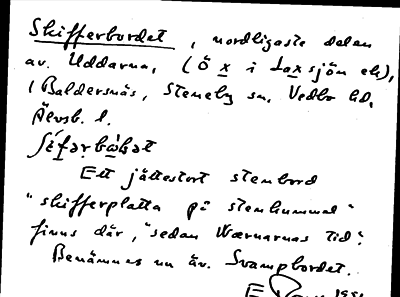 Skifferbordet, nordligaste delen
av Uddarna, (Ö x i Laxsjön ek),
i Baldersnäs, Steneby sn, Vedbo hd,
Älvsb. l.
Ett jättestort stenbord
"skifferplatta på stenkummel"
finns där, "sedan Wærnarnas tid".
Benämnes nu äv. Svampbordet.
E